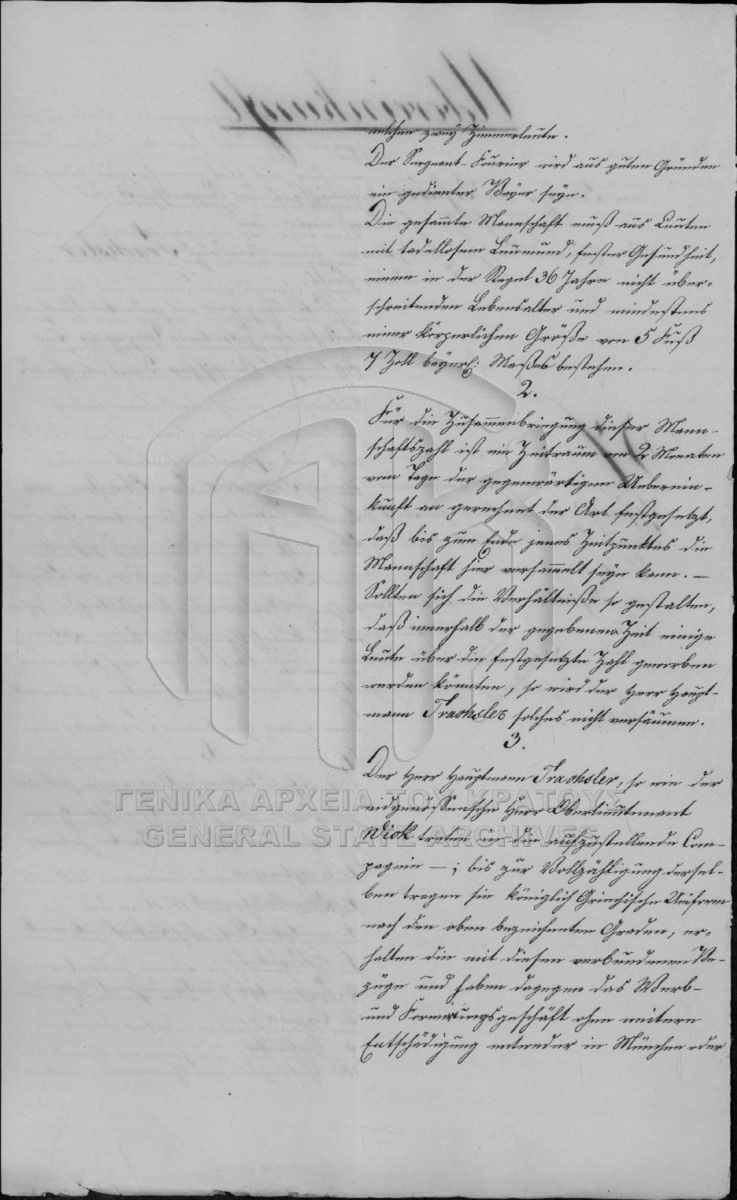 welchen zwey Zimmerleute.
Der Sergeant-Fourier wird aus guten Gründen
ein gedienter Bayer seyn.
Die gesammte Mannschaft muß aus Leuten
mit tadellosem Leumund, fester Gesundheit,
einem in der Regel 36 Jahre nicht über-
schreitenden Lebensalter und mindestens
einer körperlichen Größe von 5 Fuß
7 Zoll bayer: Maßes bestehen.
2.
Für die Zusammenbringung dieser Mann-
schaftszahl ist ein Zeitraum von 2 Monaten
vom Tage der gegenwärtigen Ueberein-
kunft an gerechnet der Art festgesetzt,
daß bis zum Ende jenes Zeitpunktes die
Mannschaft hier versammelt seyn kann. —
Sollten sich die Verhältniße so gestalten,
daß innerhalb der gegebenen Zeit einige
Leute über die festgesetzte Zahl geworben
werden könnten, so wird der Herr Haupt-
mann Trachsler solches nicht versäumen.
3.
Der Herr Hauptmann Trachsler, so wie der
eidgenössensche Herr Oberlieutenant
Wick treten in die aufzustellende Com-
pagnie —; bis zur Vollzähligung dersel-
ben tragen sie Königlich Griechische Uniform
nach den oben bezeichneten Graden, er-
halten die mit diesen verbundenen Be-
züge und haben dagegen das Werb-
und Formierungsgeschäft ohne weitere
Entschädigung entweder in München oder
ΓΕΝΙΚΑ ΑΡΧΕΙΑ ΤΟΥ ΚΡΑΤΟΥΣ
GENERAL STATE ARCHIVES